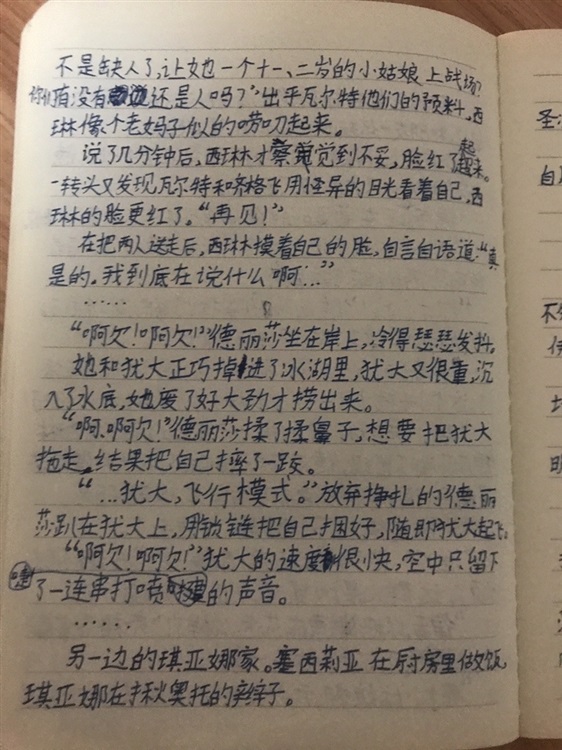 不是缺人了,让她一个十一、二岁的小姑娘上战场?
你们有没有还是人吗?”出乎瓦尔特他们的预料,西
琳像个老妈子似的唠叨起来。
说了几分钟后,西琳才察觉到不妥,脸红了起来。
一转头又发现瓦尔特和齐格飞用怪异的目光看着自己,西
琳的脸更红了。“再见!”
在把两人送走后,西琳摸着自己的脸,自言自语道:“真
是的。我到底在说什么啊...”
……
“啊欠!啊欠!”德丽莎坐在岸上,冷得瑟瑟发抖。
她和犹大正巧掉进了冰湖里,犹大又很重,沉
入了水底,她废了好大劲才捞出来。
“啊、啊欠!”德丽莎揉了揉鼻子,想要把犹大
拖走。结果把自己摔了一跤。
“...犹大,飞行模式。”放弃挣扎的德丽
莎趴在犹大上,用锁链把自己捆好,随即犹大起飞。
“啊欠!啊欠!”犹大的速度很快,空中只留下
了一连串打喷嚏的声音。
……
另一边的琪亚娜家。塞西莉亚在厨房里做饭。
琪亚娜在揪奥托的辫子。
圣
自
不
明